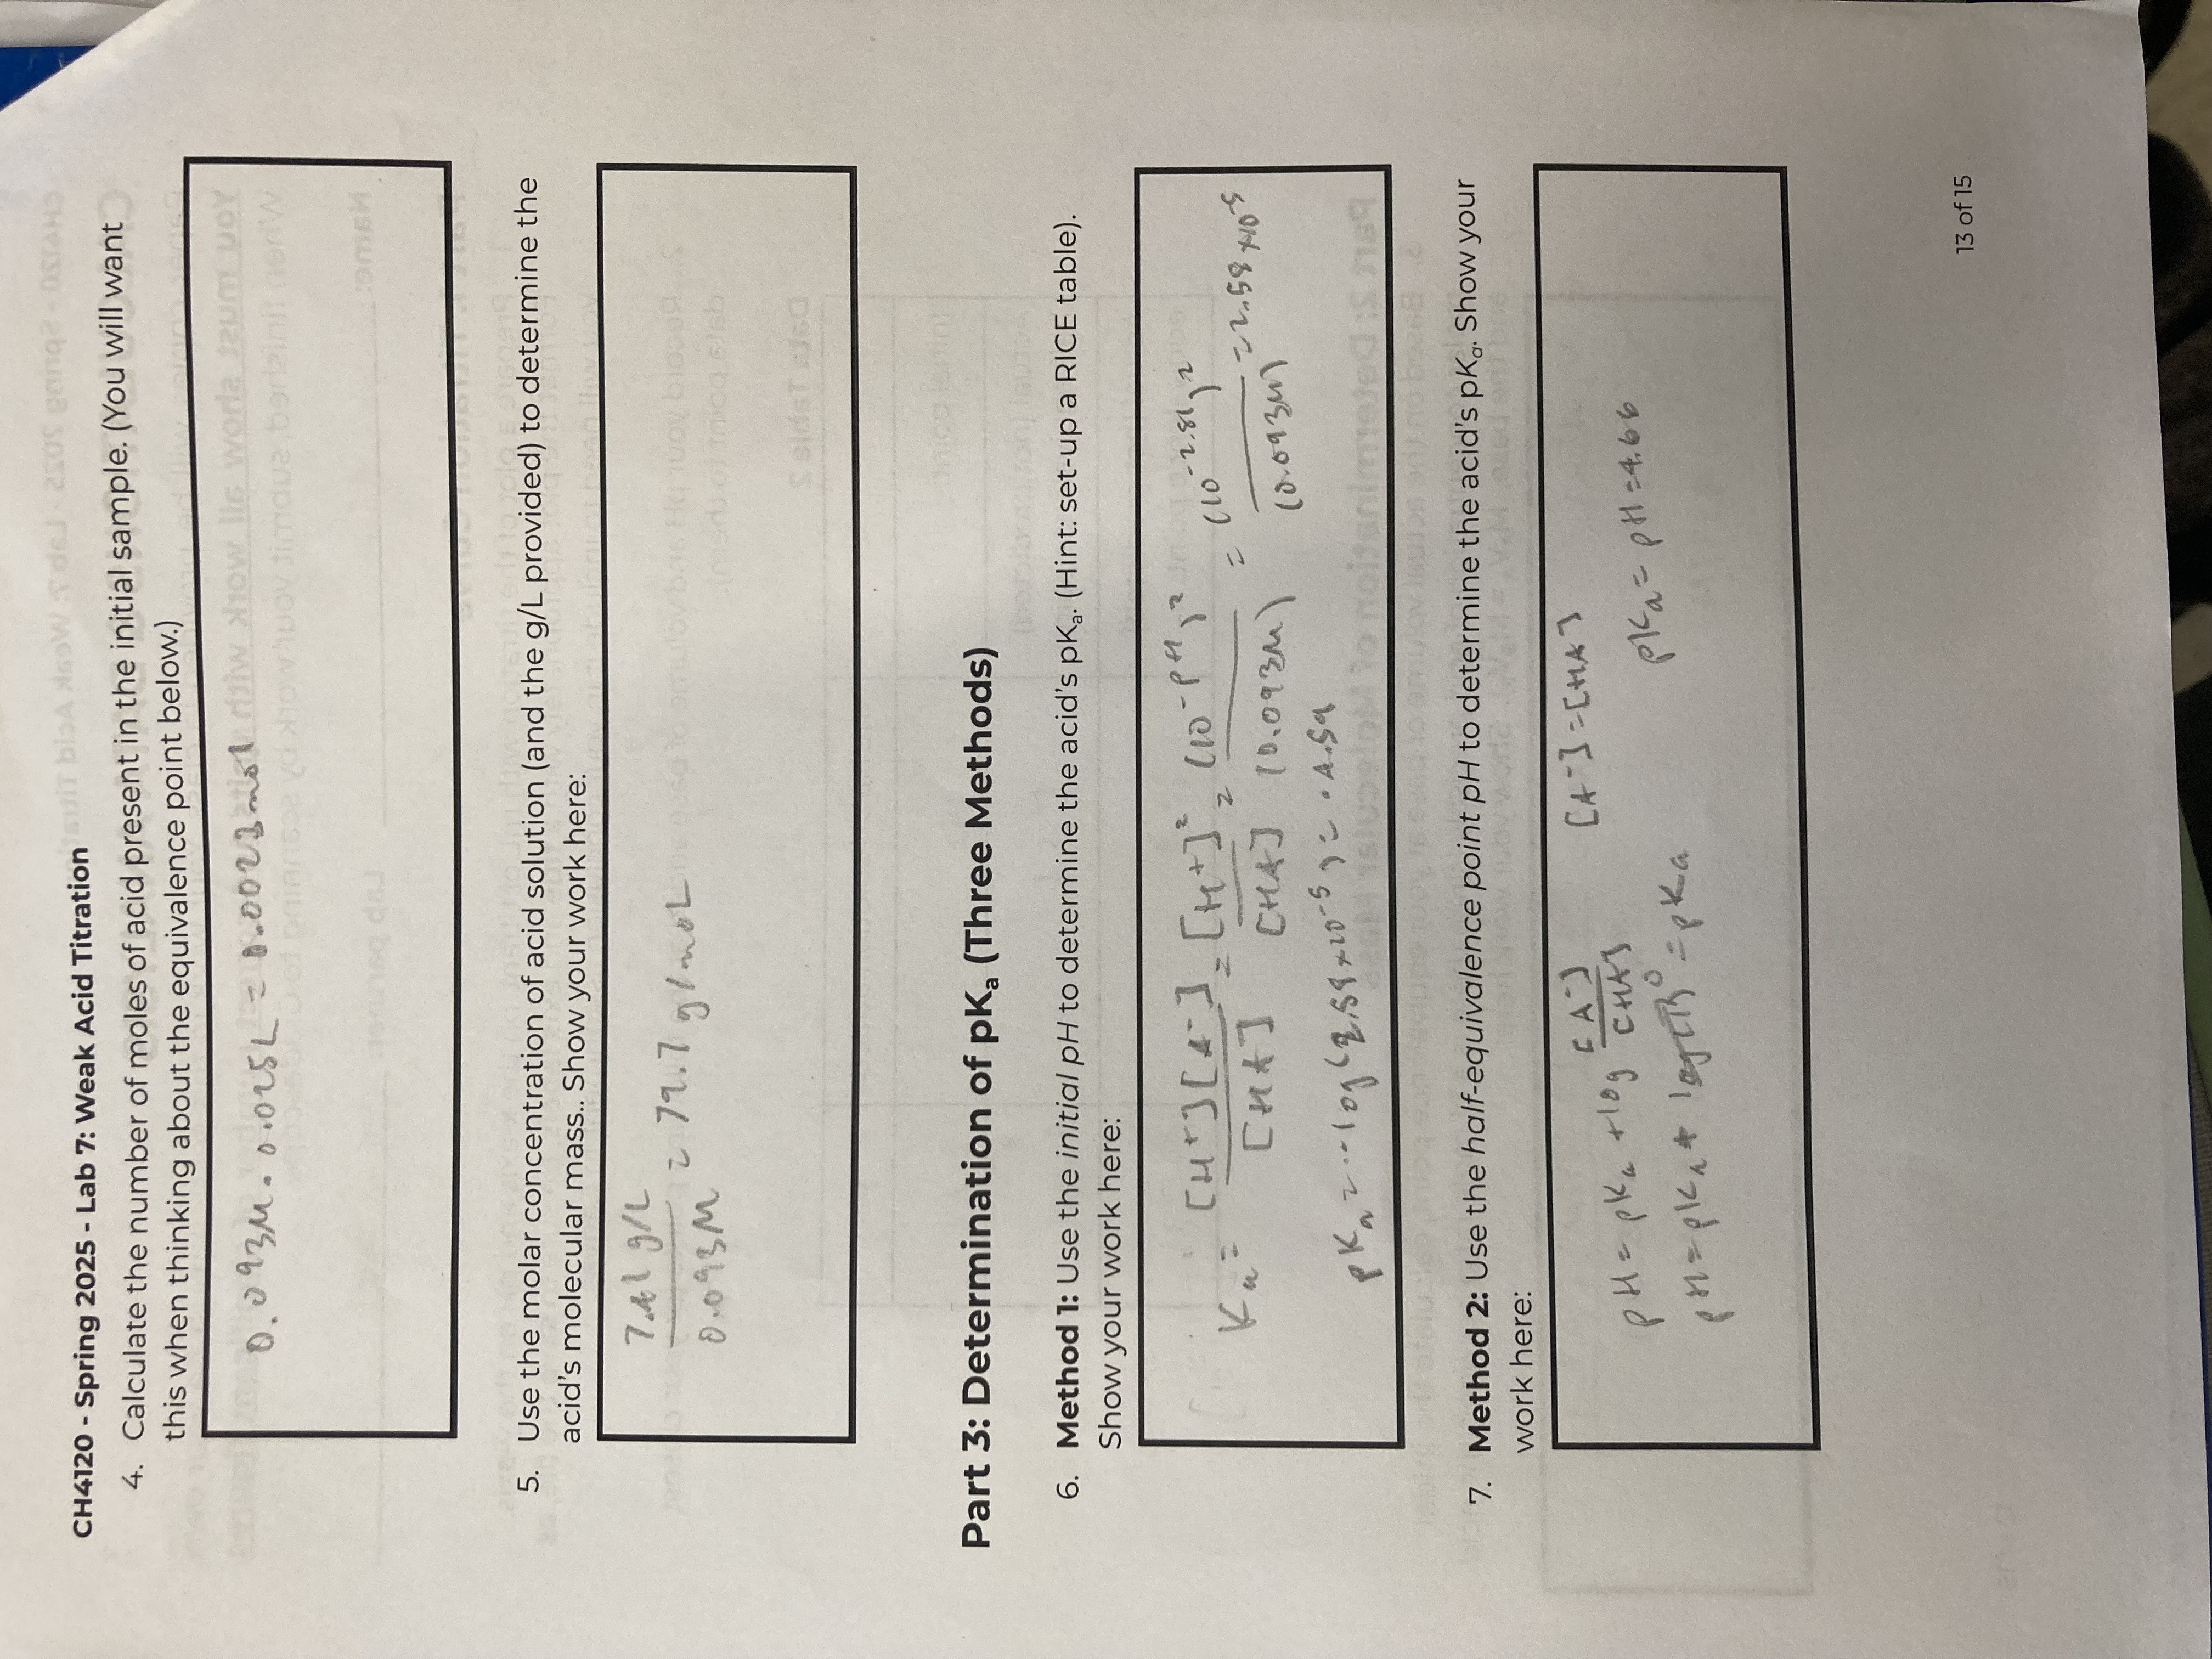 CH4120 - Spring 2025 - Lab 7: Weak Acid Titration
4. Calculate the number of moles of acid present in the initial sample. (You will want
this when thinking about the equivalence point below.)
0.093M . 0.025L = 0.0023 mol
5. Use the molar concentration of acid solution (and the g/L provided) to determine the
acid's molecular mass.. Show your work here:
7.41 g/L / 0.093M = 79.7 g/moL
Part 3: Determination of pKₐ (Three Methods)
6. Method 1: Use the initial pH to determine the acid's pKₐ. (Hint: set-up a RICE table).
Show your work here:
Kₐ = [H⁺][A⁻] / [HA] = [H⁺]² / [HA] = (10^-pH)² / (0.093M) = (10^-2.81)² / (0.093M) = 2.58 x10⁻⁵
pKₐ = -log(2.58x10⁻⁵) = 4.59
7. Method 2: Use the half-equivalence point pH to determine the acid's pKₐ. Show your
work here:
pH = pKₐ + log [A⁻] / [HA] [A⁻] = [HA]
pH = pKₐ + log(1) ⁰ = pKₐ pKₐ = pH = 4.66
13 of 15